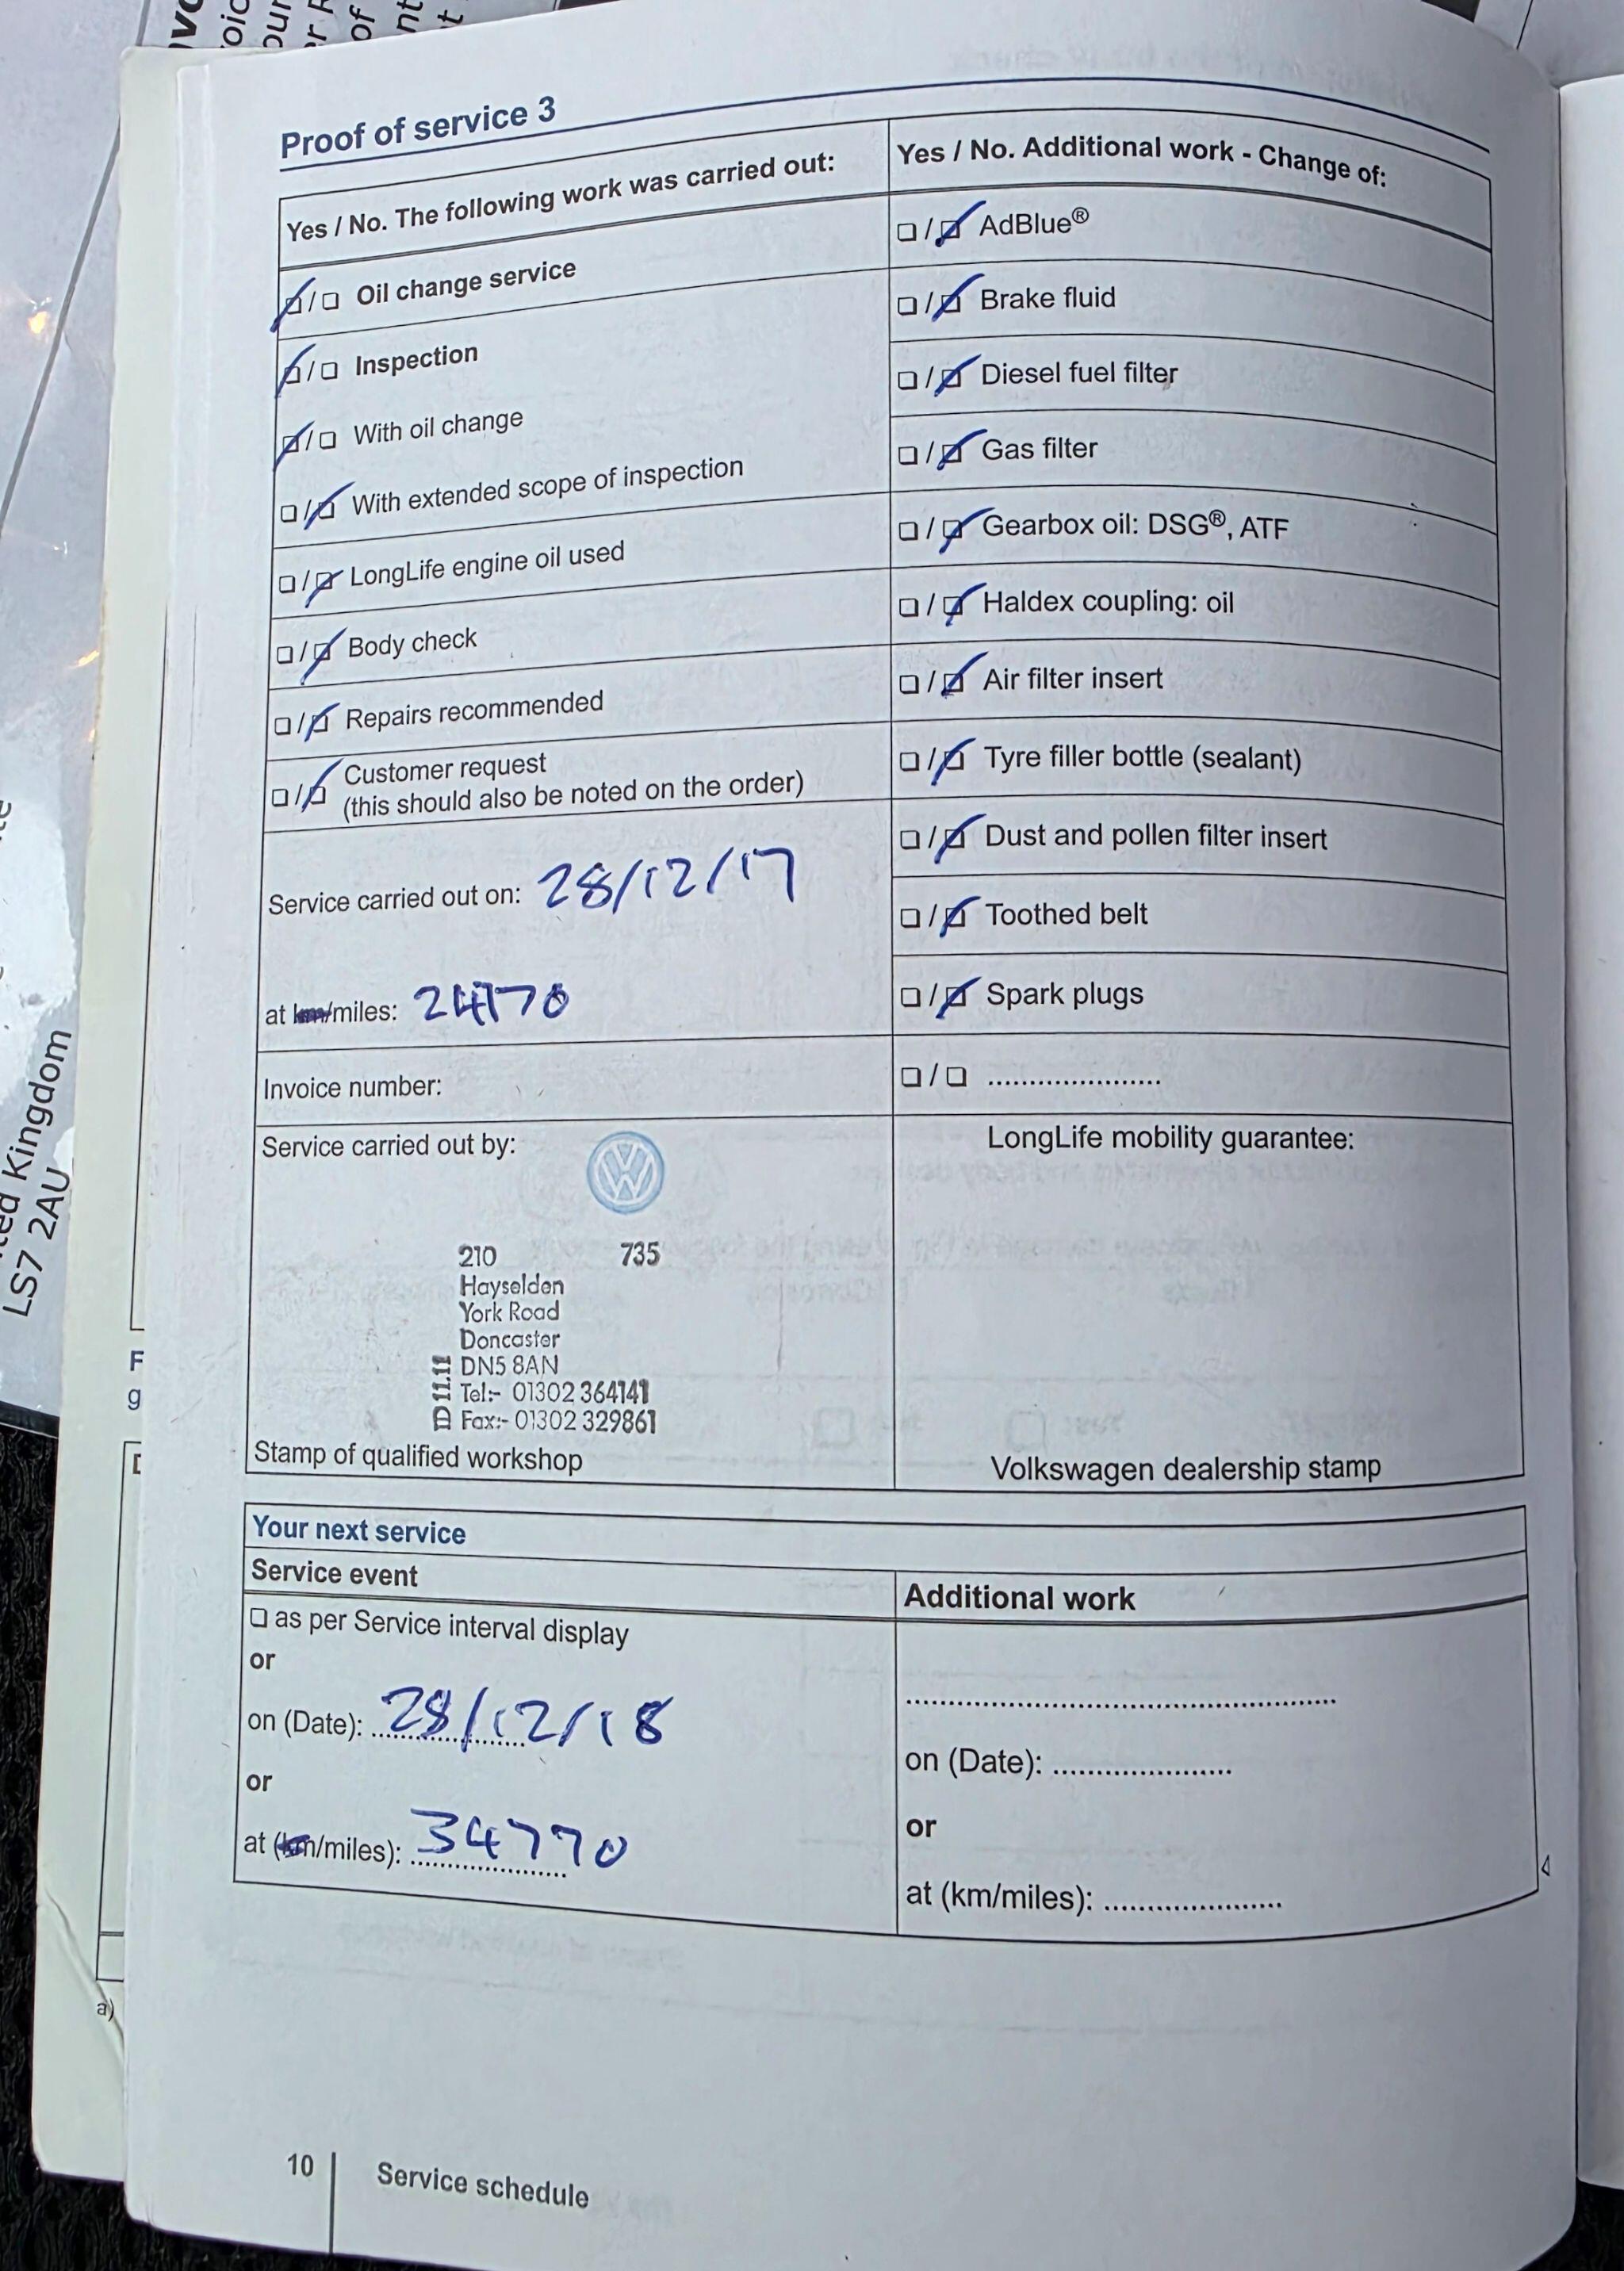 Proof of service 3
Yes / No. The following work was carried out:
☑/☐ Oil change service
☑/☐ Inspection
☑/☐ With oil change
☐/☑ With extended scope of inspection
☐/☑ LongLife engine oil used
☐/☑ Body check
☐/☑ Repairs recommended
☐/☑ Customer request
(this should also be noted on the order)
Service carried out on: 28/12/17
at km/miles: 24770
Invoice number:
Service carried out by:
VW
210 735
Hayselden
York Road
Doncaster
DN5 8AN
Tel:- 01302 364141
Fax:- 01302 329861
Stamp of qualified workshop
Yes / No. Additional work - Change of:
☐/☑ AdBlue®
☐/☑ Brake fluid
☐/☑ Diesel fuel filter
☐/☑ Gas filter
☐/☑ Gearbox oil: DSG®, ATF
☐/☑ Haldex coupling: oil
☐/☑ Air filter insert
☐/☑ Tyre filler bottle (sealant)
☐/☑ Dust and pollen filter insert
☐/☑ Toothed belt
☐/☑ Spark plugs
☐/☐ ......................
LongLife mobility guarantee:
Volkswagen dealership stamp
Your next service
Service event
☐ as per Service interval display
or
on (Date): 28/12/18
or
at (km/miles): 34770
Additional work
......................
on (Date): ......................
or
at (km/miles): ......................
10 Service schedule
Kingdom
LS7 2AU
F
g
a)